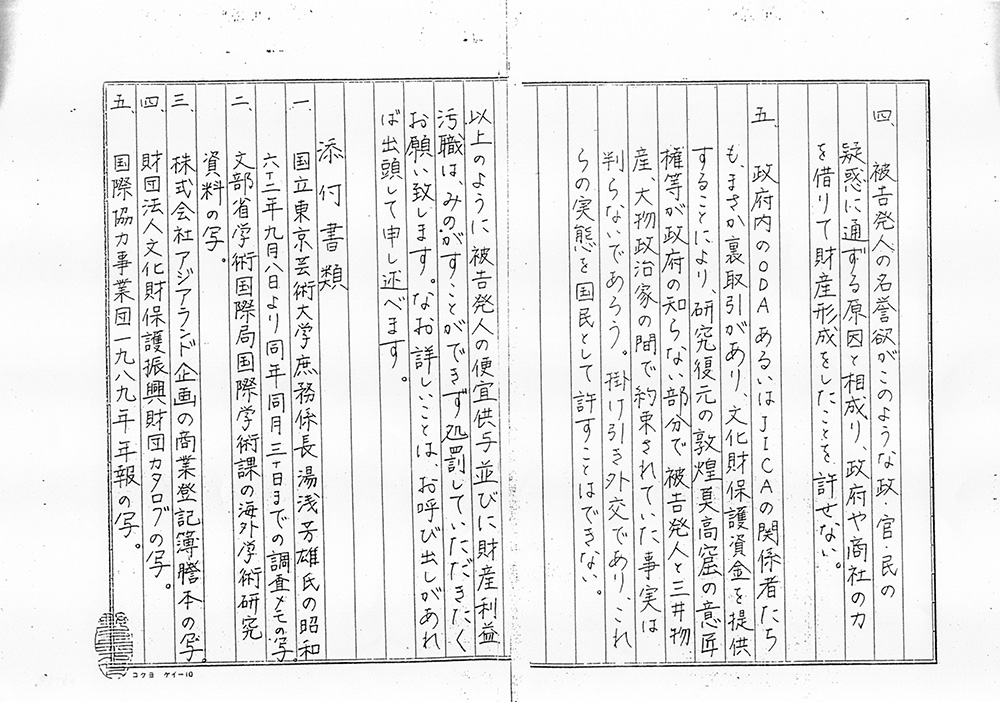 四、被告発人の名誉欲がこのような政・官・民の
疑惑に通ずる原因と相成り、政府や商社の力
を借りて財産形成をしたことを許せない。
五、政府内のODAあるいはJICAの関係者たち
も、まさか裏取引があり、文化財保護資金を提供
することにより、研究復元の敦煌莫高窟の意匠
権等が政府の知らない部分で被告発人と三井物
産、大物政治家の間で約束されていた事実は
判らないであろう。掛け引き外交であり、これ
らの実態を国民として許すことはできない。
以上のように被告発人の便宜供与並びに財産利益
汚職は、みのがすことができず処罰していただきたく
お願い致します。なお詳しいことは、お呼び出しがあれ
ば出頭して申し述べます。
添付書類
一、国立東京芸術大学庶務係長湯浅芳雄氏の昭和
六十二年九月八日より同年同月三十日までの調査メモの写。
二、文部省学術国際局国際学術課の海外学術研究
資料の写。
三、株式会社アジアランド企画の商業登記簿謄本の写。
四、財団法人文化財保護振興財団カタログの写。
五、国際協力事業団一九八九年年報の写。
コクヨ ケイー10